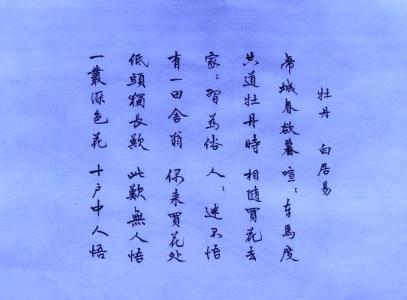 牡丹 白居易
帝城春欲暮 喧:车馬度
共道牡丹時 相隨買花去
家:習為俗 人:迷不悟
有一田舍翁 偶来買花处
低頭獨長歎 此歎無人悟
一叢深色花 十户中人悟